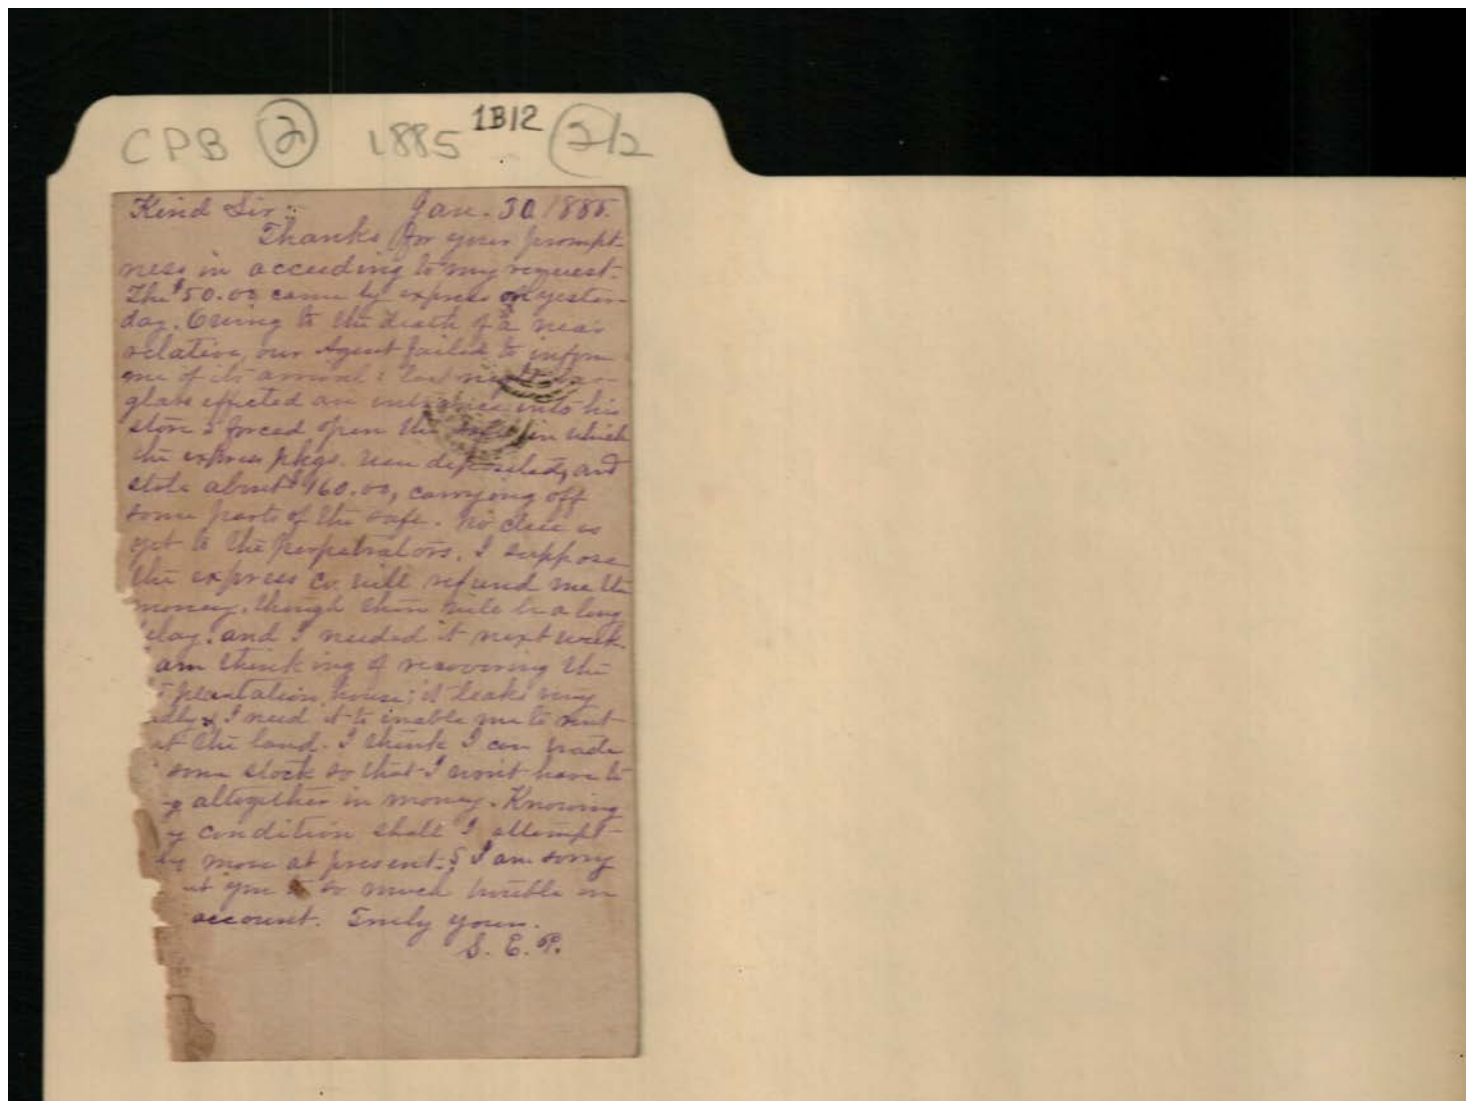 CPB 2 1885 1B12 2/2
Kind Sir: Jan. 30 1885.
Thanks for your prompt-
ness in acceeding to my request.
The $50.00 came by express on yester-
day. Owing to the death of a near
relative, our Agent failed to inform
me of its arrival: last night bur-
glars effected an entrance into his
store & forced open the safe in which
the express pkgs. were deposited, and
stole about $160.00, carrying off
some parts of the safe. No clue as
yet to the perpetrators. I suppose
the express co. will refund me the
money, though there will be a long
elay. and I needed it next week.
am thinking of recovering the
plantation house; it leaks very
adly & I need it to inable me to rent
the land. I think I can trade
some stock so that I won't have to
altogether in money. Knowing
condition shall I attempt
more at present? I am sorry
you to so much trouble on
account. Truly yours.
S. E. P.